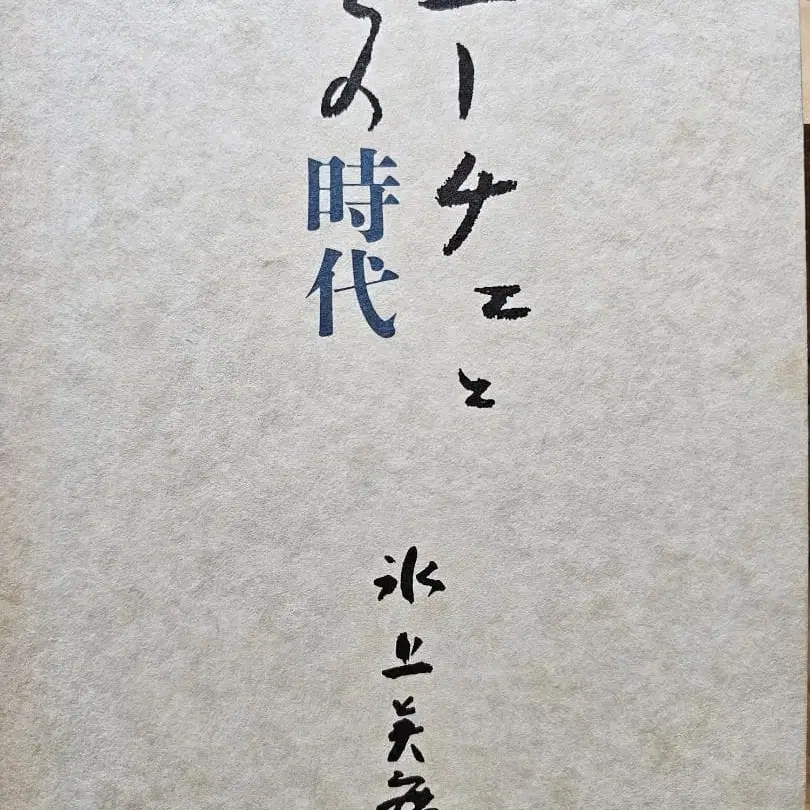 ニーチェと
の時代
氷上英